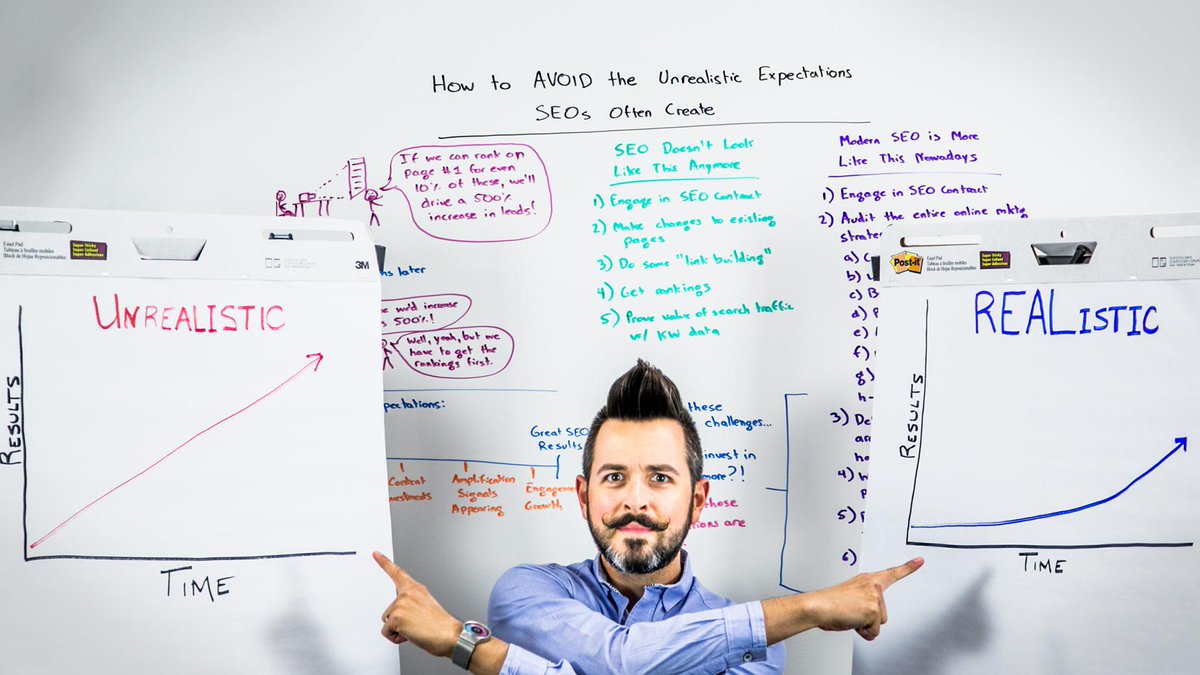 How to AVOID the Unrealistic Expectations
SEOs Often Create
If we can rank on
page #1 for even
10% of these, we'll
drive a 500%
increase in leads!
later
we'd increase
500%!
Well, yeah, but we
have to get the
rankings first.
Great SEO
Results
Content
Amplification
Signals
Appearing
Growth
SEO Doesn't Look
Like This Anymore
1) Engage in SEO Contract
2) Make changes to existing
pages
3) Do some "link building"
4) Get rankings
5) Prove value of search traffic
w/ KW data
these
challenges...
invest in
more?!
those
are
Modern SEO is More
Like This Nowadays
1) Engage in SEO Contract
2) Audit the entire online mktg
a)
b)
c)
d)
e)
f)
g)
h-
3)
4)
5)
6)
Easel Pad
Tableau à feuilles mobiles
Block de Hojas Reposicionables
Super Sticky
3M
UNREALISTIC
RESULTS
TIME
Post-it
Easel Pad
Tableau à feuilles mobiles
Block de Hojas Reposicionables
REALISTIC
RESULTS
TIME